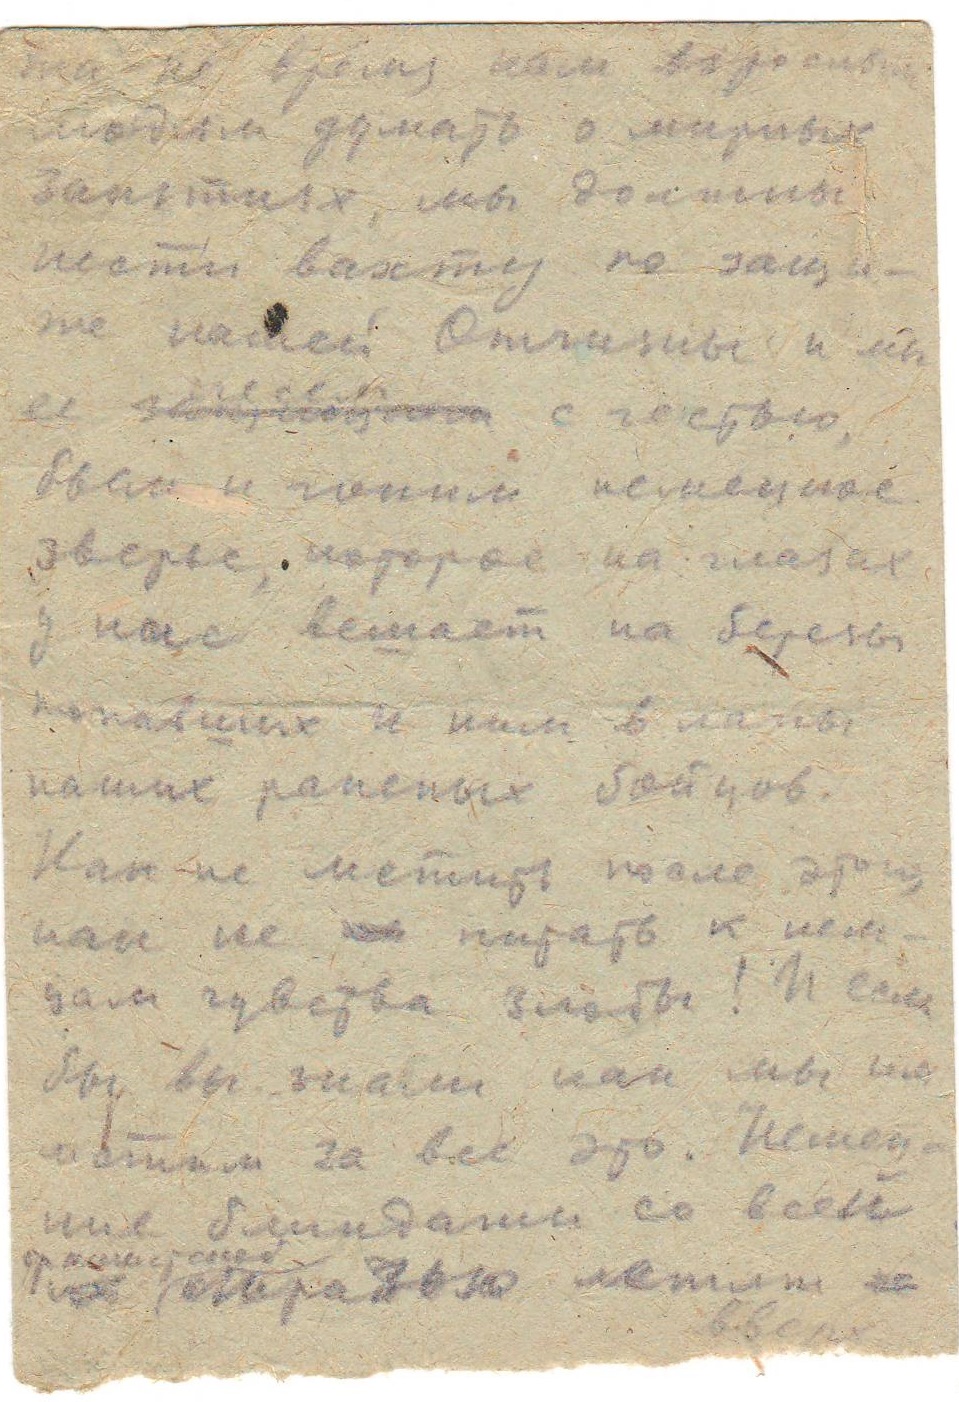 на не время нам взрослым
людям думать о мирных
занятиях, мы должны
нести вахту по защи-
те нашей Отчизны и мы
ее защищаем с честью,
бьем и гоним немецкое
зверье, которое на глазах
у нас вешает на березы
попавших к ним в лапы
наших раненых бойцов.
Как не мстить после этого
как не питать к нем-
цам чувства злобы! И если
бы вы знали как мы им
мстим за все это. Немец-
кие блиндажи со всей
фашистской
мразью летят
вверх